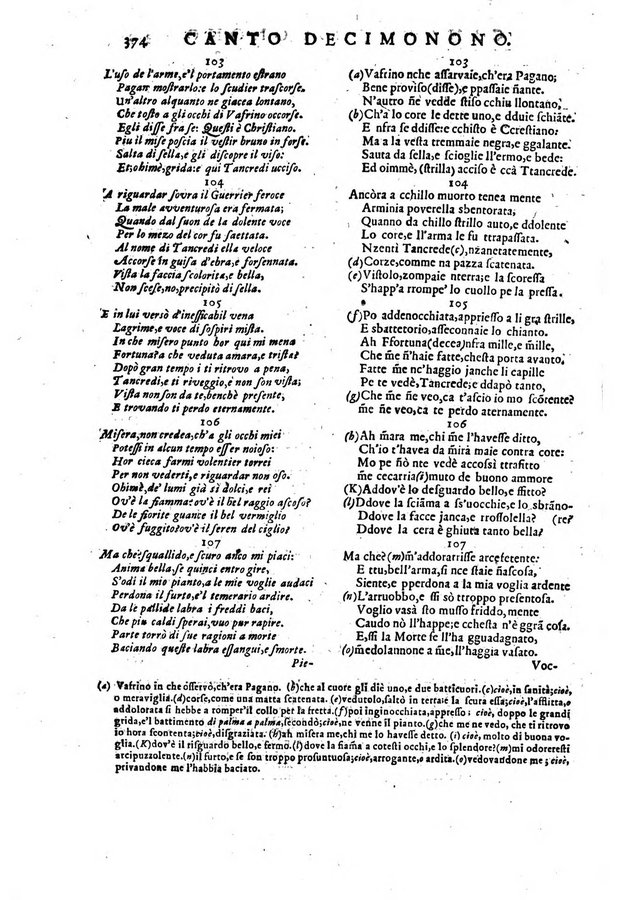 374 CANTO DECIMONONO.
103
L'uso de l'arme, e'l portamento estrano
Pagan mostrarlo: e lo scudier trascorse.
Un'altro alquanto ne giacea lontano,
Che tosto a gli occhi di Vafrino occorse.
Egli disse fra se: Questi è Christiano.
Piu il mise poscia il vestir bruno in forse.
Salta di sella, e gli discopre il viso:
Et, ohimè, grida: e qui Tancredi ucciso.
104
A riguardar sovra il Guerrier feroce
La male avventurosa era fermata;
Quando dal suon de la dolente voce
Per lo mezo del cor fu saettata.
Al nome di Tancredi ella veloce
Accorse in guisa d'ebra, e forsennata.
Vista la faccia scolorita, e bella,
Non scese, nò; precipitò di sella.
105
E in lui versò d'inessicabil vena
Lagrime, e voce di sospiri mista.
In che misero punto hor qui mi mena
Fortuna? a che veduta amara, e trista?
Dopò gran tempo i ti ritrovo a pena,
Tancredi; e ti riveggio, e non son vista;
Vista non son da te, benchè presente,
E trovando ti perdo eternamente.
106
Misera, non credea, ch'a gli occhi miei
Potessi in alcun tempo esser noioso:
Hor cieca farmi volentier torrei
Per non vederti, e riguardar non oso.
Ohimè, de' lumi già sì dolci, e rei
Ov'è la fiamma? ov'è il bel raggio ascoso?
De le fiorite guance il bel vermiglio
Ov'è fuggito? ov'è il seren del ciglio?
107
Ma che? squallido, e scuro anco mi piaci:
Anima bella, se quinci entro gire,
S'odi il mio pianto, a le mie voglie audaci
Perdona il furto, e'l temerario ardire.
Da le pallide labra i freddi baci,
Che piu caldi sperai, vuo pur rapire.
Parte torrò di sue ragioni a morte
Baciando queste labra essangui, e smorte.
Pie-
103
(a) Vafrino nche assarvaie, ch'era Pagano;
Bene proviso (disse), e ppassaie ñante.
N'autro ñe vedde stiso cchiu llontano,
(b) Ch'à lo core le dette uno, e dduie schiãte.
E nfra se ddisse: e cchisto è Ccrestiano:
Ma a la vesta tremmaie negra, e ggalante.
Sauta da sella, e scioglie ll'ermo, e bede:
Ed oimmè, (strilla) acciso è ccà Ttancrede.
104
Ancòra a cchillo muorto tenea mente
Arminia poverella sbentorata;
Quanno da chillo strillo auto, e ddolente
Lo core, e ll'arma le fu ttrapassata.
Nzentì Tancrede (c), nzanetatemente,
(d) Corze, comme na pazza scatenata.
(e) Vistolo, zompaie nterra; e la scoressa
S'happ'a rrompe' lo cuollo pe la pressa.
105
(f) Po addenocchiata, appriesso a li gra strille,
E sbattetorio, asseconnaie lo chianto.
Ah Ffortuna (decea) nfra mille, e mille,
Che m̃e ñ'haie fatte, chesta porta avanto.
Fatte m̃e ne'haggio janche li capille
Pe te vedè, Tancrede; e ddapò tanto,
(g) Che m̃e ñe veo, ca t'ascio io mo scõrente?
m̃e ñe veo, ca te perdo aternamente.
106
(h) Ah m̃ara me, chi m̃e l'havesse ditto,
Ch'io t'havea da m̃irà maie contra core:
Mo pe ñò nte vedè accossì ttrafitto
m̃e cecarria (i) muto de buono ammore
(K) Addov'è lo desguardo bello, e ffitto?
(l) Ddove la sciãma a ss'uocchie, e lo sbrãno-
Ddove la facce janca, e rrossolella? (re?
Ddove la cera è ghiuta tanto bella?
107
Ma chè? (m) m'addorarrisse arcefetente:
E ttu, bell'arma, si nce staie ñascosa,
Siente, e pperdona a la mia voglia ardente
(n) L'arruobbo, e ssi sò ttroppo presentosa.
Voglio vasà sto musso friddo, mente
Caudo nò ll'happe; e cchesta n'è ggrã cosa.
E, ssi la Morte se ll'ha gguadagnato,
(o) medolannone a m̃e, ll'haggia vasato.
Voc-
(a) Vafrino in che osservò, ch'era Pagano. (b) che al cuore gli diè uno, e due batticuori. (c) cioè, in sanità; cioè,
o meraviglia. (d) corse, come una matta scatenata. (e) vedutolo, saltò in terra: e la scura essa; cioè, l'afflitta, e
addolorata si hebbe a romper'il collo pèr la fretta. (f) poi inginocchiata, appresso; cioè, doppo le grandi
grida, e'l battimento di palma a palma, secondò; cioè, ne venne il pianto. (g) che me ne vedo, che ti ritrovo
io hora scontenta; cioè, disgraziata. (h) ah misera me, chi me lo havesse detto. (i) cioè, molto di buona vo-
glia. (K) dov'è il risguardo bello, e fermo. (l) dove la fiam̃a a cotesti occhi, e lo splendore? (m) mi odoresti
arcipuzzolente. (n) il furto, e se son troppo prosuntuosa; cioè, arrogante, o ardita. (o) vedovandone me; cioè,
privandone me l'habbia baciato.